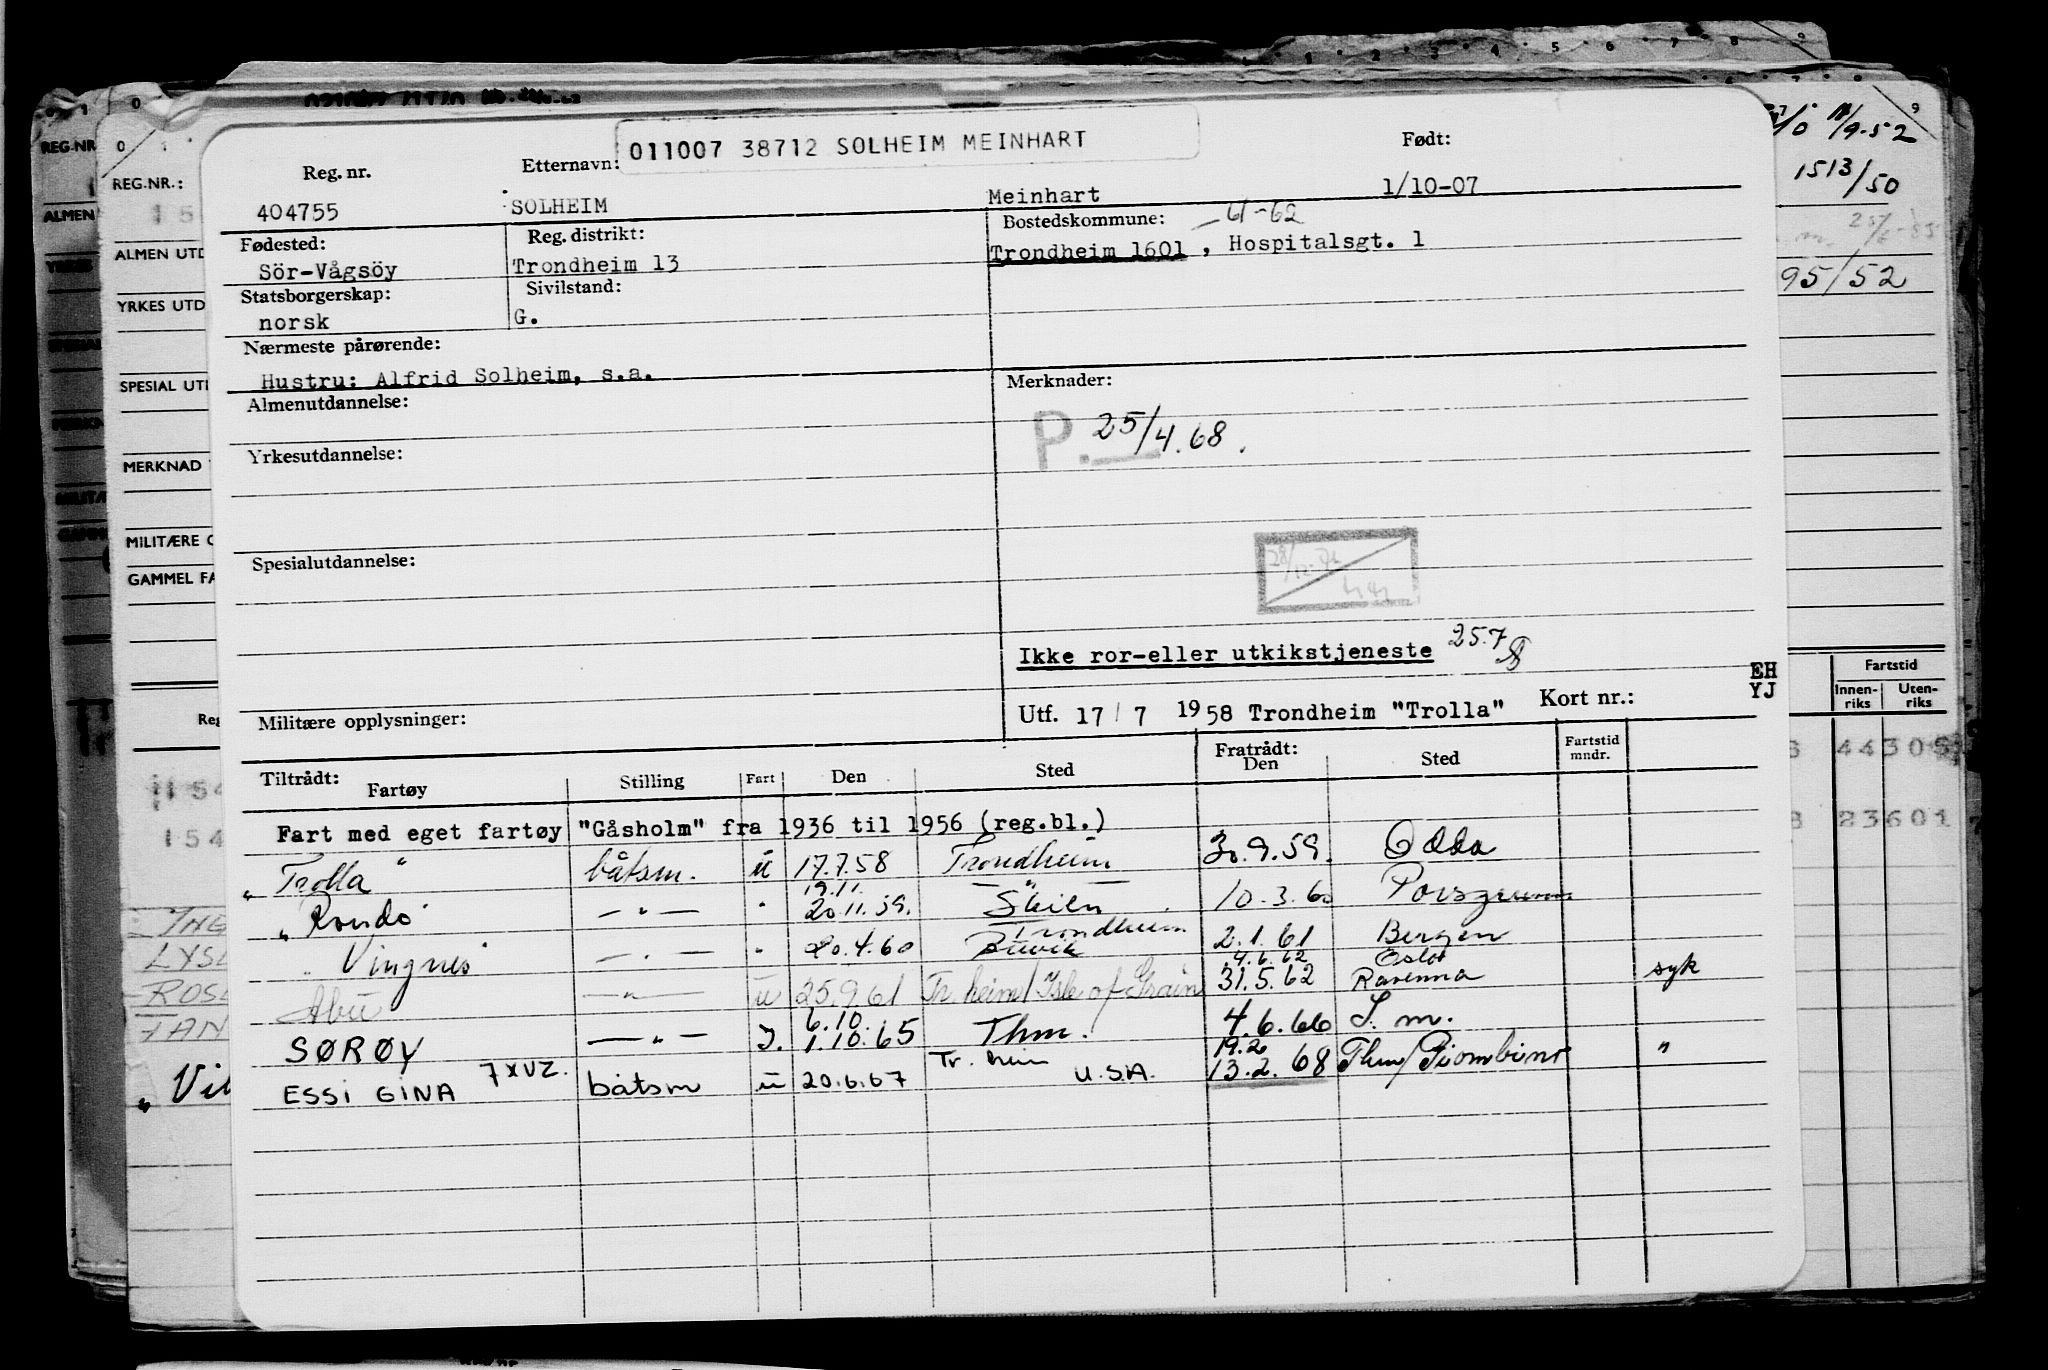 011007 38712 SOLHEIM MEINHART
Reg. nr. Etternavn: Født:
404755 SOLHEIM Meinhart 1/10-07
Fødested: Reg. distrikt: Bostedskommune: 61-62
Sör-Vågsöy Trondheim 13 Trondheim 1601 , Hospitalsgt. 1
Statsborgerskap: Sivilstand:
norsk G.
Nærmeste pårørende:
Hustru: Alfrid Solheim, s.a.
Almenutdannelse: Merknader:
P. 25/4.68.
Yrkesutdannelse:
Spesialutdannelse:
Ikke ror-eller utkikstjeneste 25.7
Militære opplysninger: Utf. 17/7 1958 Trondheim "Trolla" Kort nr.:
EH
YJ
Tiltrådt: Fratrådt:
Fartøy Stilling Fart Den Sted Den Sted Fartstid mndr.
Fart med eget fartøy "Gåsholm" fra 1936 til 1956 (reg.bl.)
"Trolla" båtsm. u 17.7.58 Trondheim 30.9.59. Odda
19.11. — " —
"Rondo" — " — " 20.11.59. Skien 10.3.60 Porsgrunn
Trondheim
"Vingnes" — " — " 20.4.60 Buvik 2.1.61 Bergen
4.6.62 Oslo
Abu — " — u 25.9.61 Tr.heim/Isle of Grain 31.5.62 Ravenna syk
6.10.
SØRØY — " — J. 1.10.65 Thm. 4.6.66 S. m.
19.2
ESSI GINA 7XVZ. båtsm u 20.6.67 Tr. heim U.S.A. 13.2.68 Thm/Piombino "
REG.NR
ALMEN
REG.NR.:
ALMEN UTD
YRKES UTD
SPESIAL UTD
MERKNAD
MILITÆRE O
GAMMEL FA
Reg
154
ING
LYS
ROS
TAN
"Vil
9
11/9-52
1513/50
95/52
Fartstid
Innen-riks Uten-riks
44305
23601